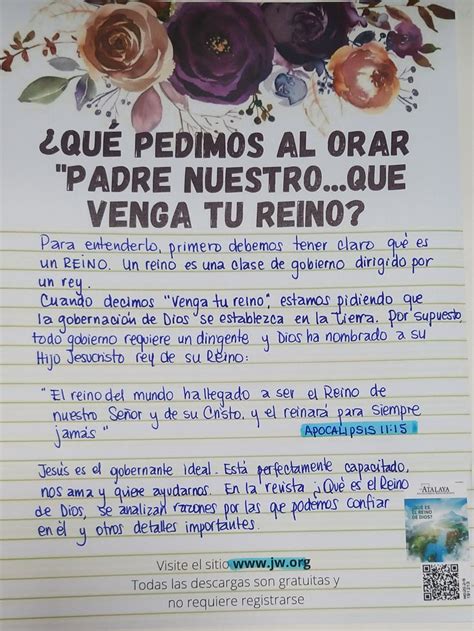 ¿QUÉ PEDIMOS AL ORAR
"PADRE NUESTRO...QUE
VENGA TU REINO?
Para entenderlo, primero debemos tener claro qué es
un REINO. Un reino es una clase de gobierno dirigido por
un rey.
Cuando decimos "Venga tu reino", estamos pidiendo que
la gobernación de Dios se establezca en la tierra. Por supuesto,
todo gobierno requiere un dirigente y Dios ha nombrado a su
Hijo Jesucristo rey de su Reino:
"El reino del mundo ha llegado a ser el Reino de
nuestro Señor y de su Cristo, y el reinará para siempre
jamás"
APOCALIPSIS 11:15
Jesús es el gobernante ideal. Está perfectamente capacitado,
nos ama y quiere ayudarnos. En la revista ¿Qué es el Reino
de Dios, se analizan razones por las que podemos confiar
en él y otros detalles importantes.
ATALAYA
¿QUÉ ES
EL REINO
DE DIOS?
Visite el sitio www.jw.org
Todas las descargas son gratuitas y
no requiere registrarse